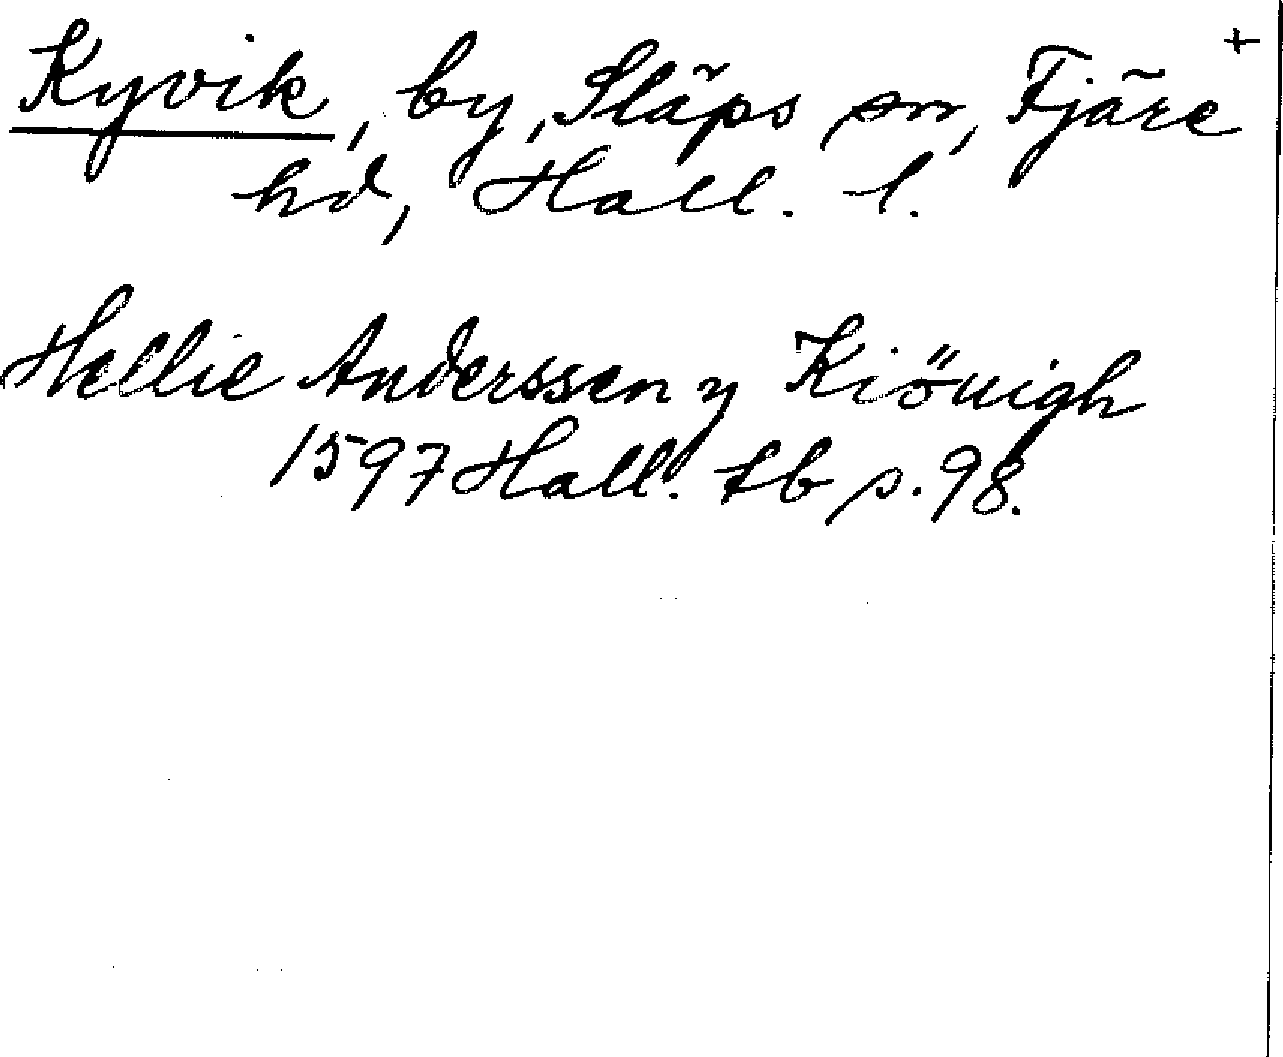 Kyvik, by, Släps sn, Fjäre +
hd, Hall. l.
Hellie Anderssen y Kiöuigh
1597 Hall. tb s. 98.